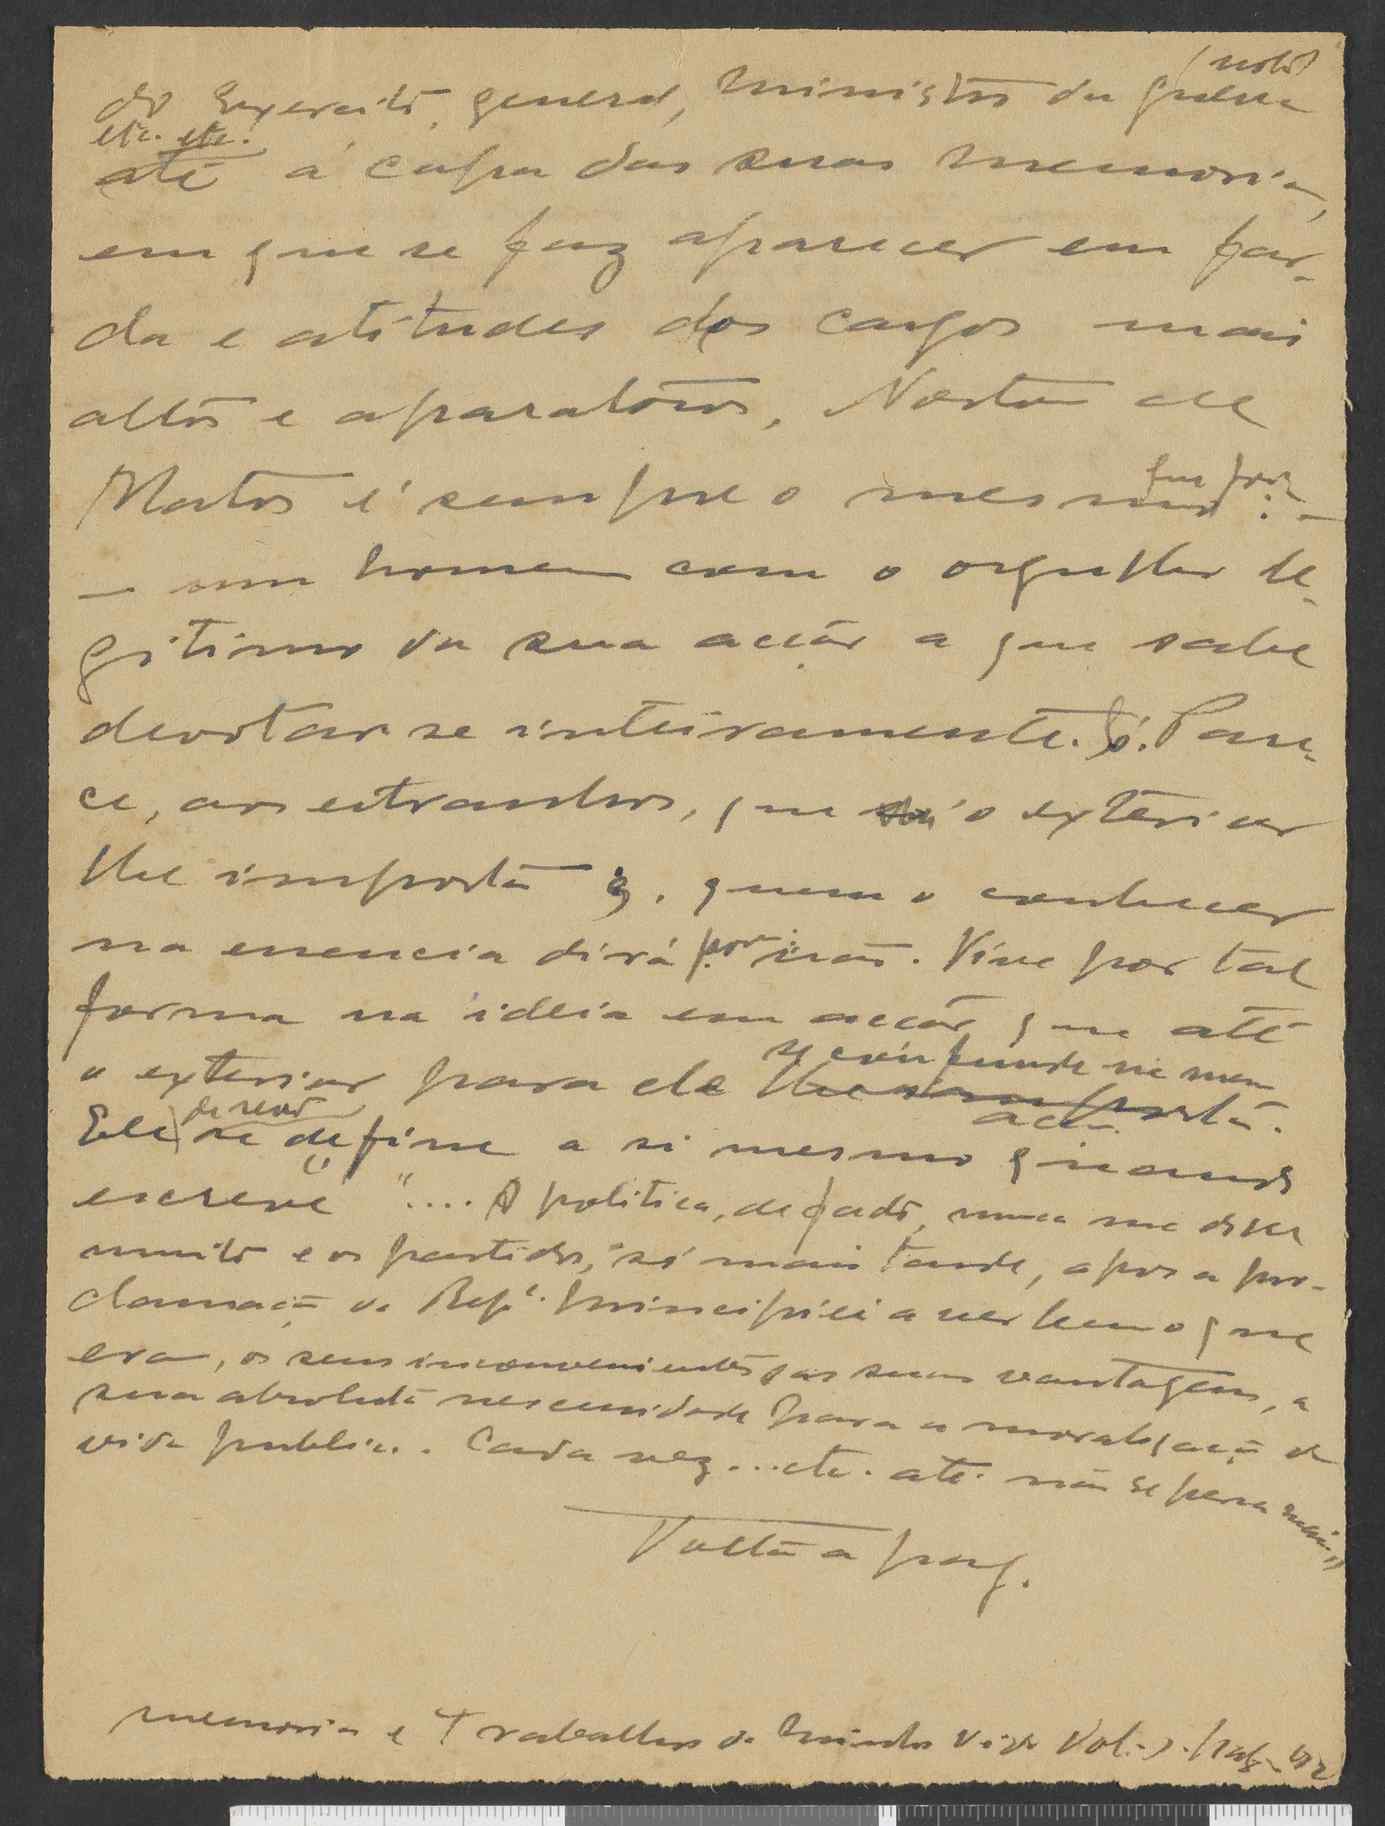 (nota)
do Exercito, general, ministro da guerra
etc. etc.
até á capa das suas memorias,
em que se faz aparecer em far-
da e atitudes dos cargos mais
altos e aparatosos, Norton de
Matos é sempre o mesmo :-
- um homem com o orgulho le-
gitimo da sua acção a que sabe
devotar-se inteiramente. Só. Pare-
ce, aos estranhos, que só o exterior
lhe importa. quem o conhecer
na essencia dirá por isso. Vive por tal
forma na ideia em acção que até
se confunde na mesma
o exterior para ele lhe importa.
acção.
de resto
Ele se define a si mesmo quando
escreve ".... A politica, de facto, nunca me disse
muito e os partidos, só mais tarde, apos a pro-
clamação da Repª. principiei a ver bem o que
era, os seus inconvenientes, as suas vantagens, a
sua absoluta necessidade para a moralização da
vida publica. Cada vez ...etc. até não se pensa mais"
Volta a pag.
memorias e Trabalhos da minha vida Vol.